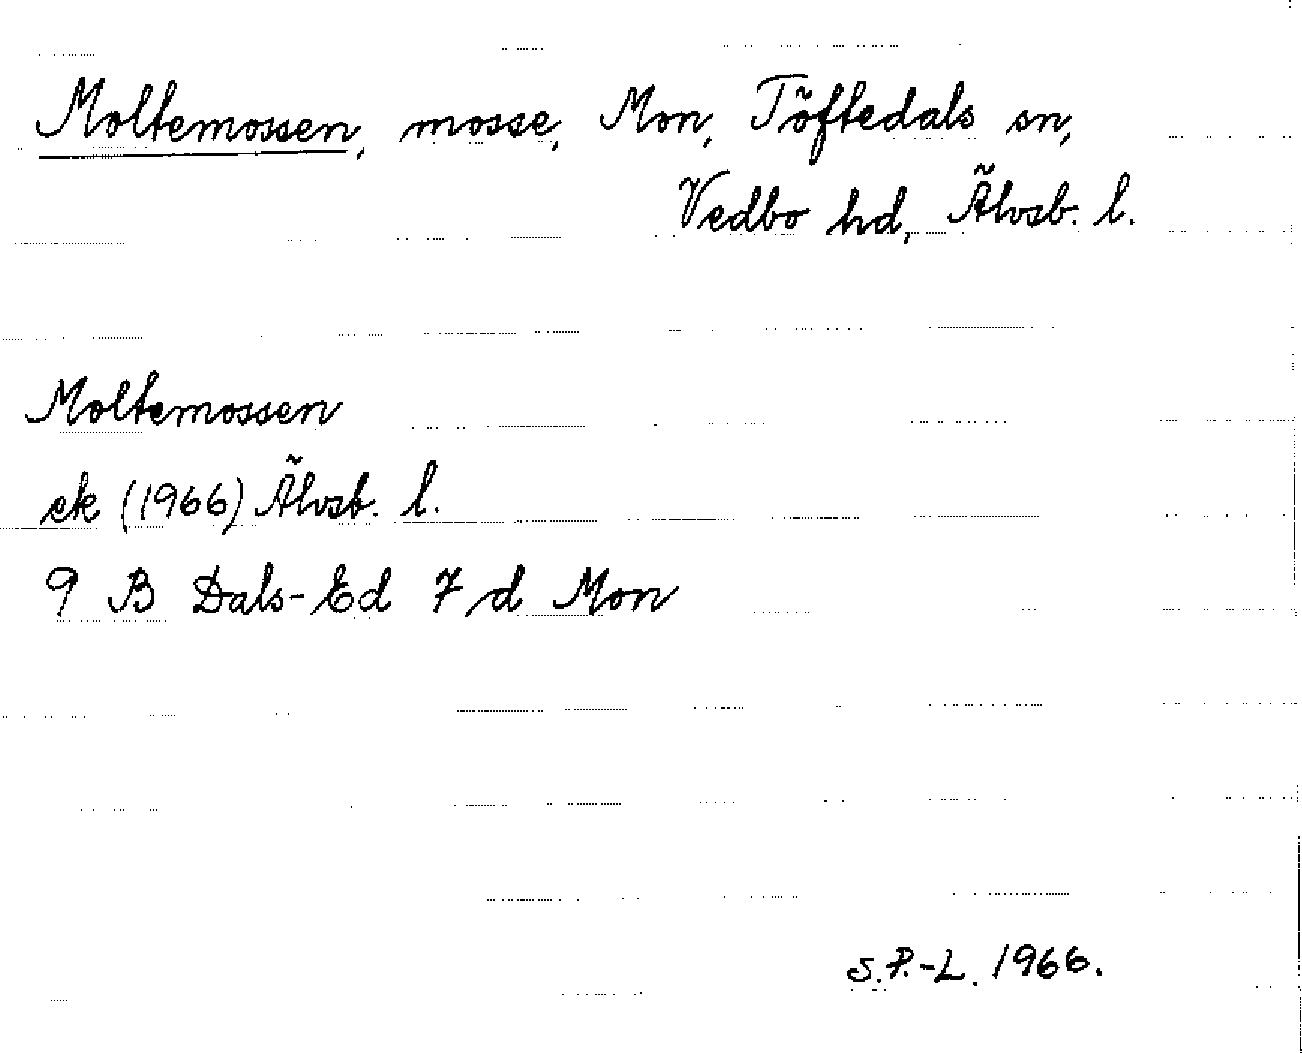 Moltemossen, mosse, Mon, Töftedals sn,
Vedbo hd, Älvsb. l.
Moltemossen
ek (1966) Älvsb. l.
9 B Dals-Ed 7 d Mon
S.P.-L. 1966.